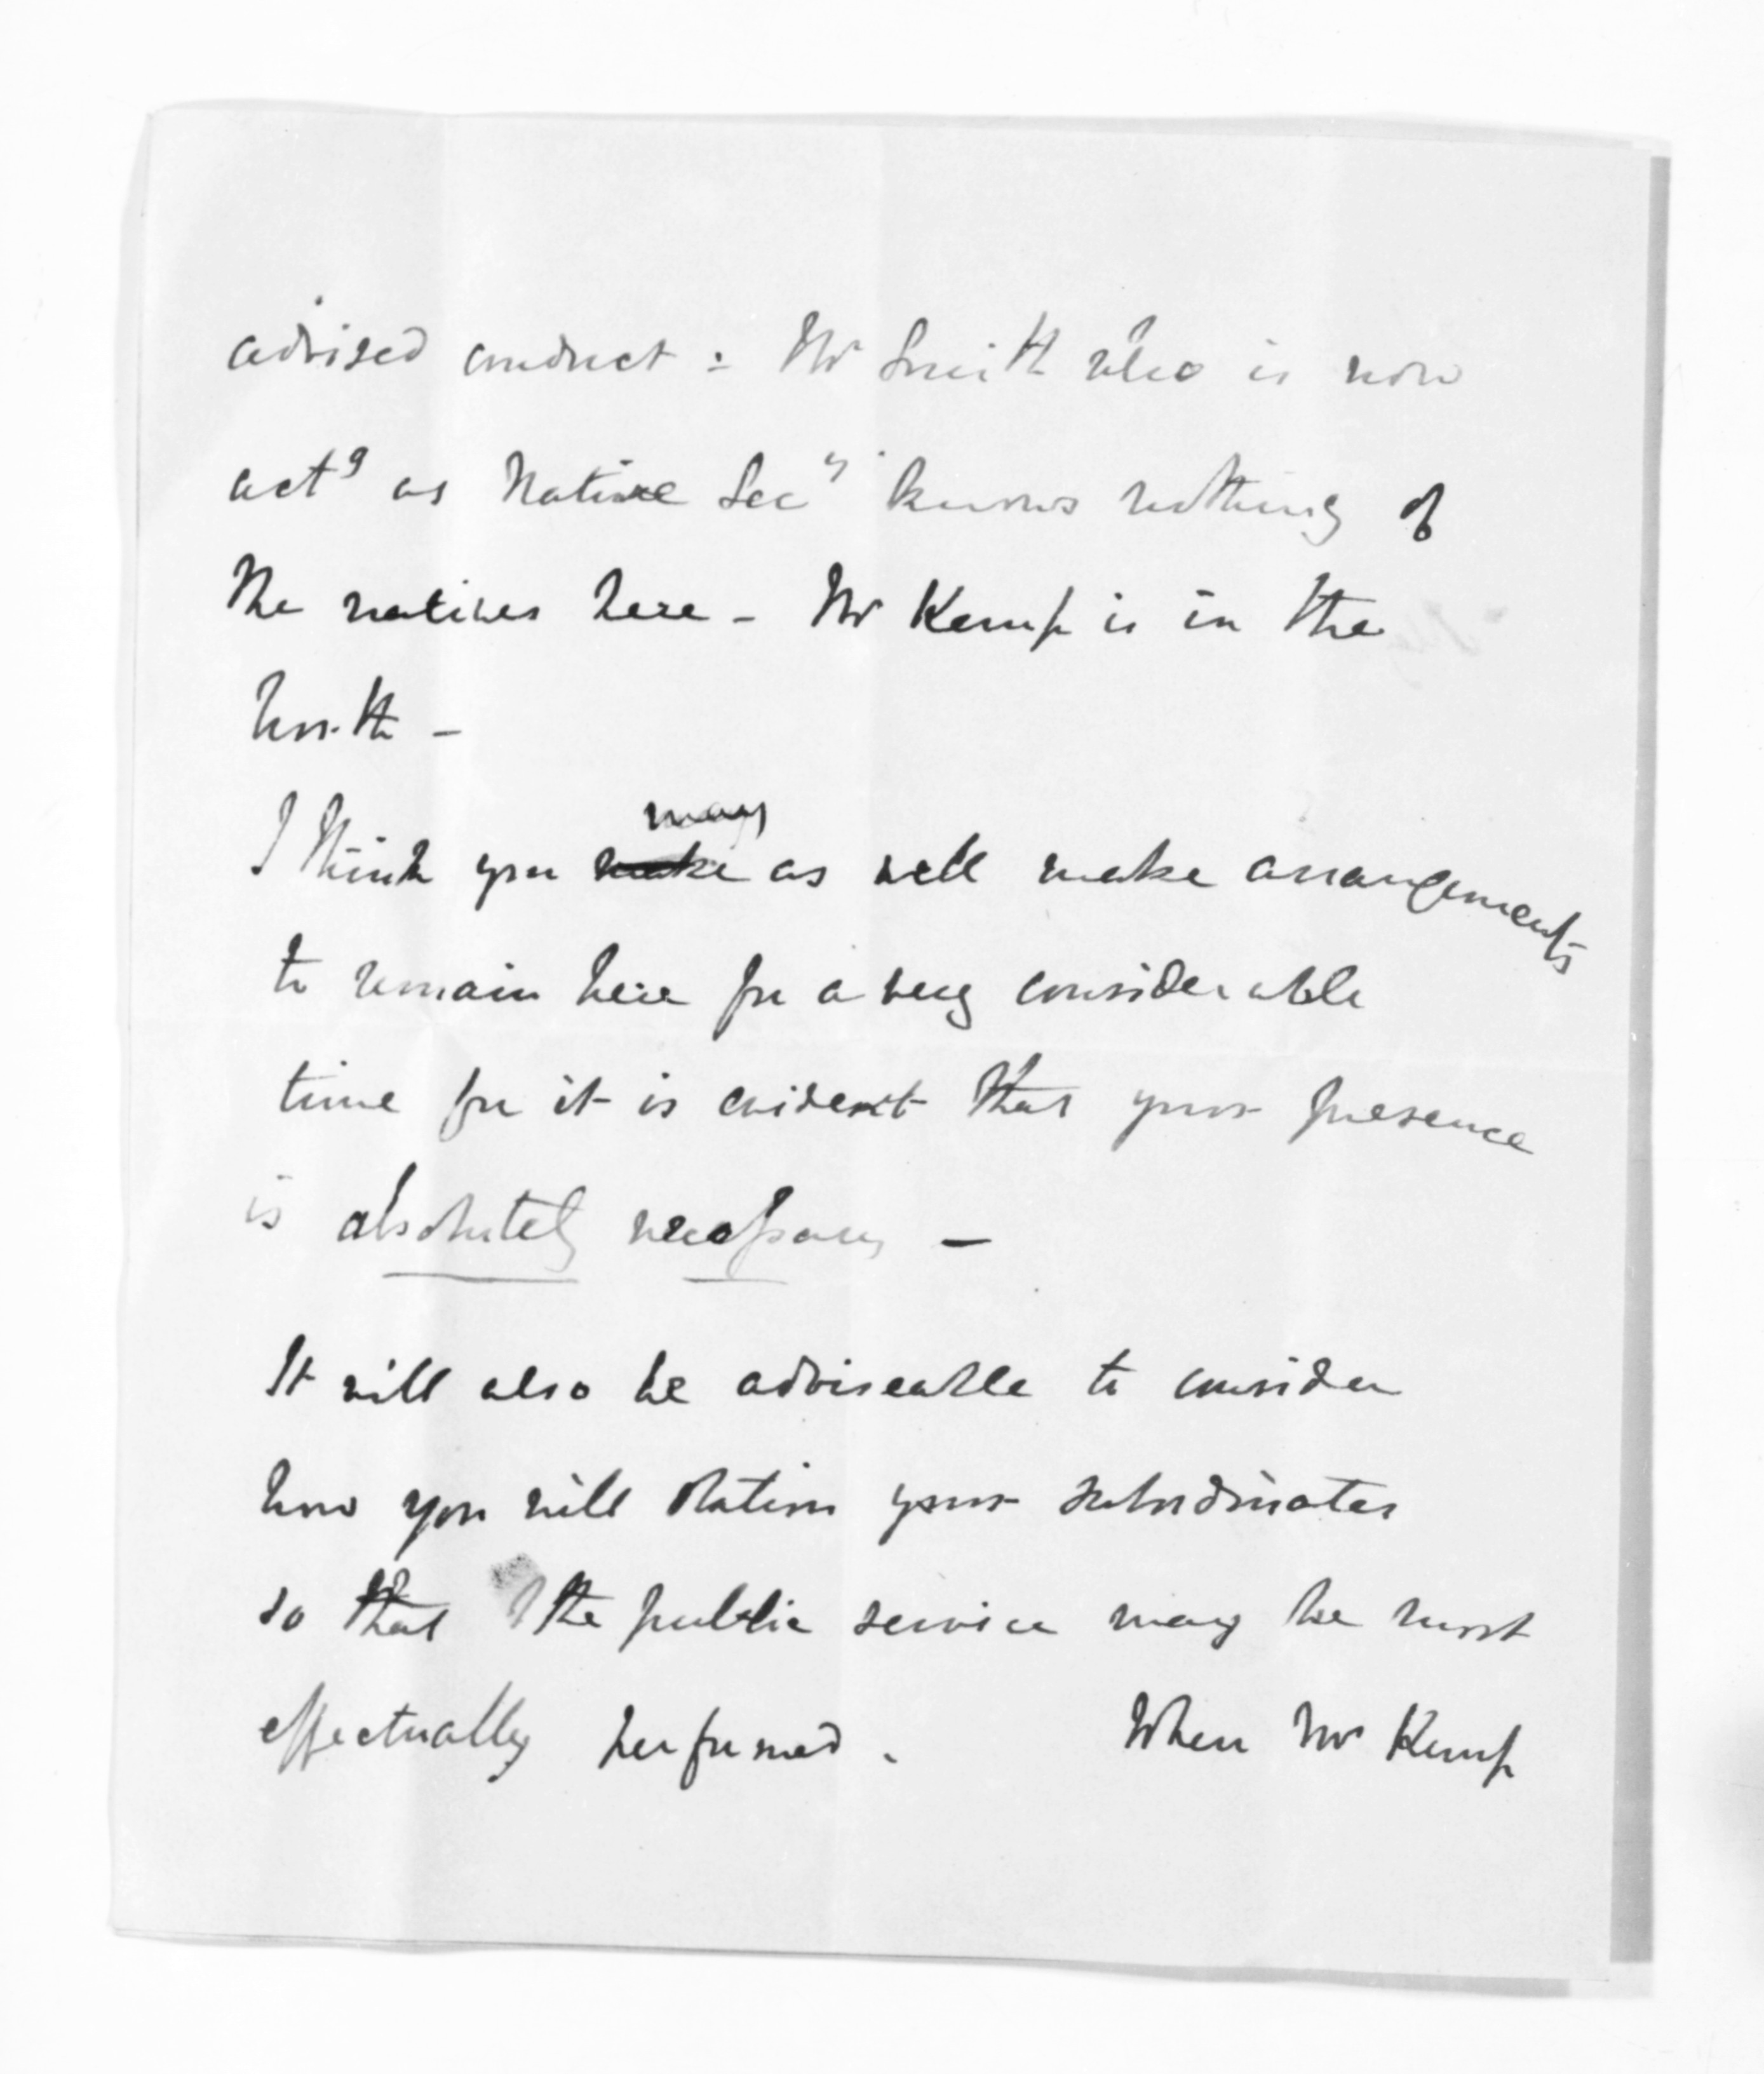 advised conduct : Mr Smith who is now
actg as Native Secy knows nothing of
the natives here - Mr Kemp is in the
North -
may
I think you make as well make arrangements
to remain here for a very considerable
time for it is evident that your presence
is absolutely necessary -
It will also be adviseable to consider
how you will station your subordinates
so that the public service may be most
effectually performed . When Mr Kemp